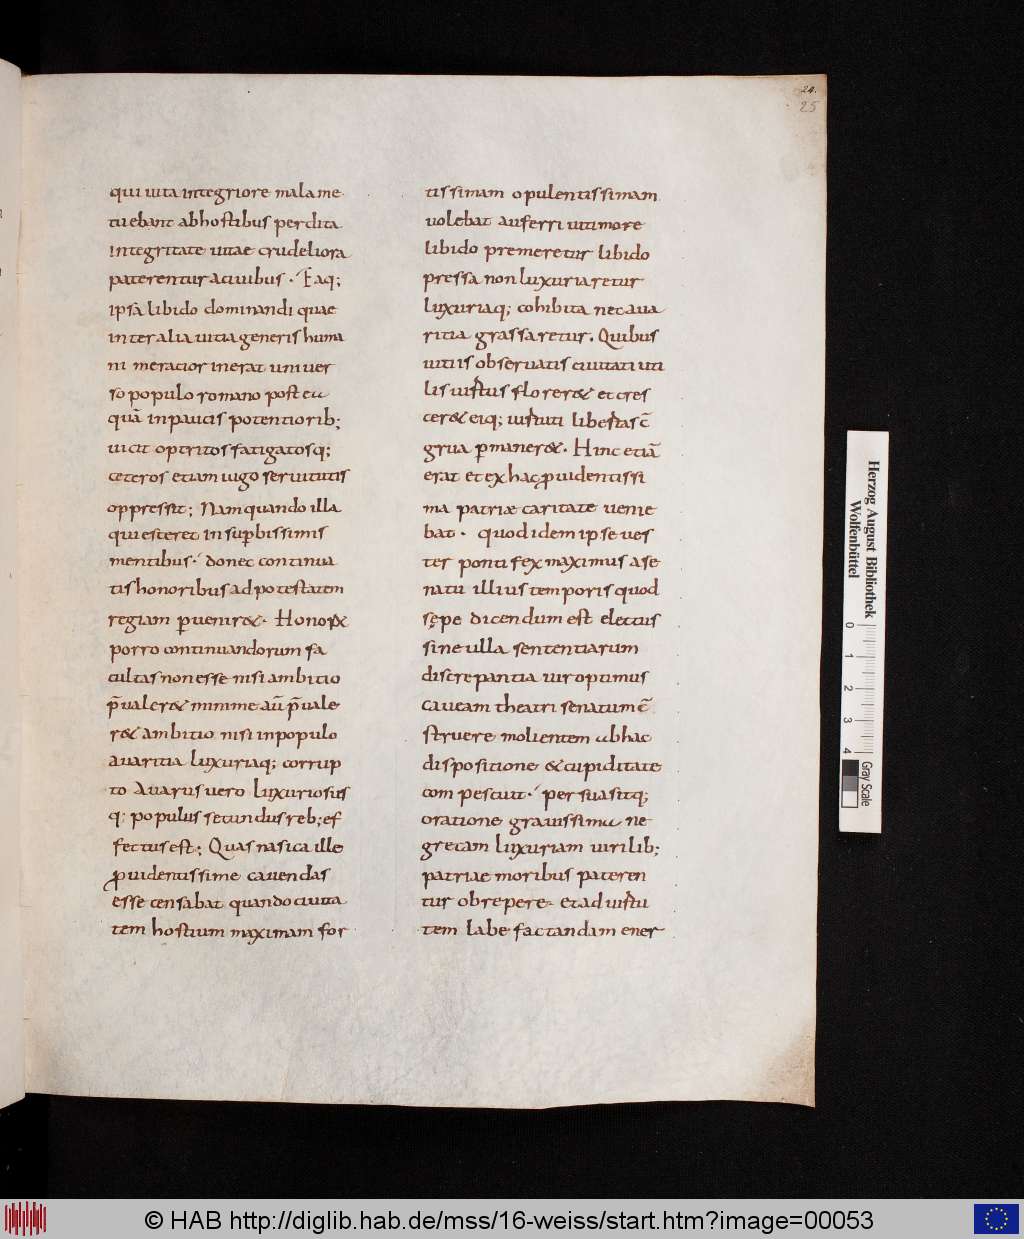 24.
25
qui uita integriore mala me
tuebant ab hostibus perdita
integritate uitae crudeliora
paterentur a ciuibus · Eaq;
ipsa libido dominandi quae
inter alia uitia generis huma
ni meracior inerat uniuer
so populo romano post ea
quā in paucis potentiorib;
uicit optritos fatigatosq;
ceteros etiam iugo seruitutis
oppressit; Nam quando illa
quiesceret in supbissimis
mentibus · donec continua
tis honoribus ad potestatem
regiam pueniret · Honorꝝ
porro continuandorum fa
cultas non esse nisi ambitio
p̄ualer& minime aū p̄uale
r& ambitio nisi in populo
auaritia luxuriaq; corrup
to Auarus uero luxuriosus
q; populus secundus reb; ef
fectus est; Quas nasica ille
ꝓuidentissime cauendas
esse censabat quando ciuita
tem hostium maximam for
tissimam opulentissimam
uolebat auferri uti more
libido premeretur libido
pressa non luxuriaretur
luxuriaq; cohibita nec aua
ritia grassaretur · Quibus
uitiis obseruatis ciuitati uti
lis uirtus florer& et cres
cer& eiq; uirtuti libertas c̄
grua pmaner& · Hinc etiā
erat et ex hac ꝓuidentissi
ma patriæ caritate uenie
bat · quod idem ipse ues
ter pontifex maximus a se
natu illius temporis quod
sępe dicendum est electus
sine ulla sententiarum
discrepantia uir optimus
caueam theatri senatum c̄
struere molientem ab hac
dispositione & cupiditate
compescuit · persuasitq;
oratione grauissima ne
grecam luxuriam uirilib;
patriae moribus pateren
tur obrepere et ad uirtu
tem labefactandam ener
Herzog August Bibliothek
Wolfenbüttel
0 1 2 3 4
Gray Scale
© HAB http://diglib.hab.de/mss/16-weiss/start.htm?image=00053